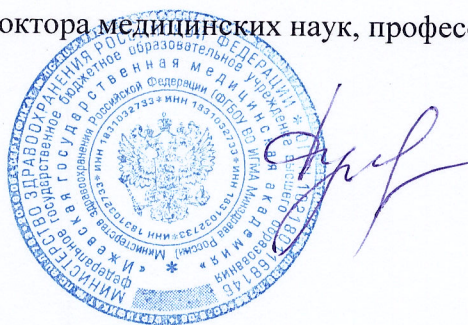 октора медицинских наук, професс
МИНИСТЕРСТВО ЗДРАВООХРАНЕНИЯ РОССИЙСКОЙ ФЕДЕРАЦИИ *
федеральное государственное бюджетное образовательное учреждение высшего образования
«Ижевская государственная медицинская академия»
Министерства здравоохранения Российской Федерации (ФГБОУ ВО ИГМА Минздрава России)
* ИНН 1831032733 * ИНН 1831032733 * ИНН 1831032733 * ИНН 1831032733